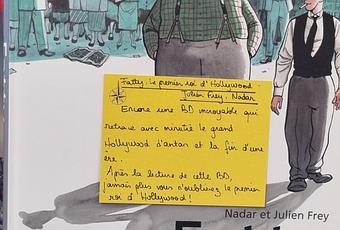 Fatty. Le premier roi d'Hollywood
Julien Frey. Nadar
Encore une BD incroyable qui
retrace avec minutie le grand
Hollywood d'antan et la fin d'une
ère.
Après la lecture de cette BD,
jamais plus vous n'oublierez le premier
roi d'Hollywood !
Nadar et Julien Frey